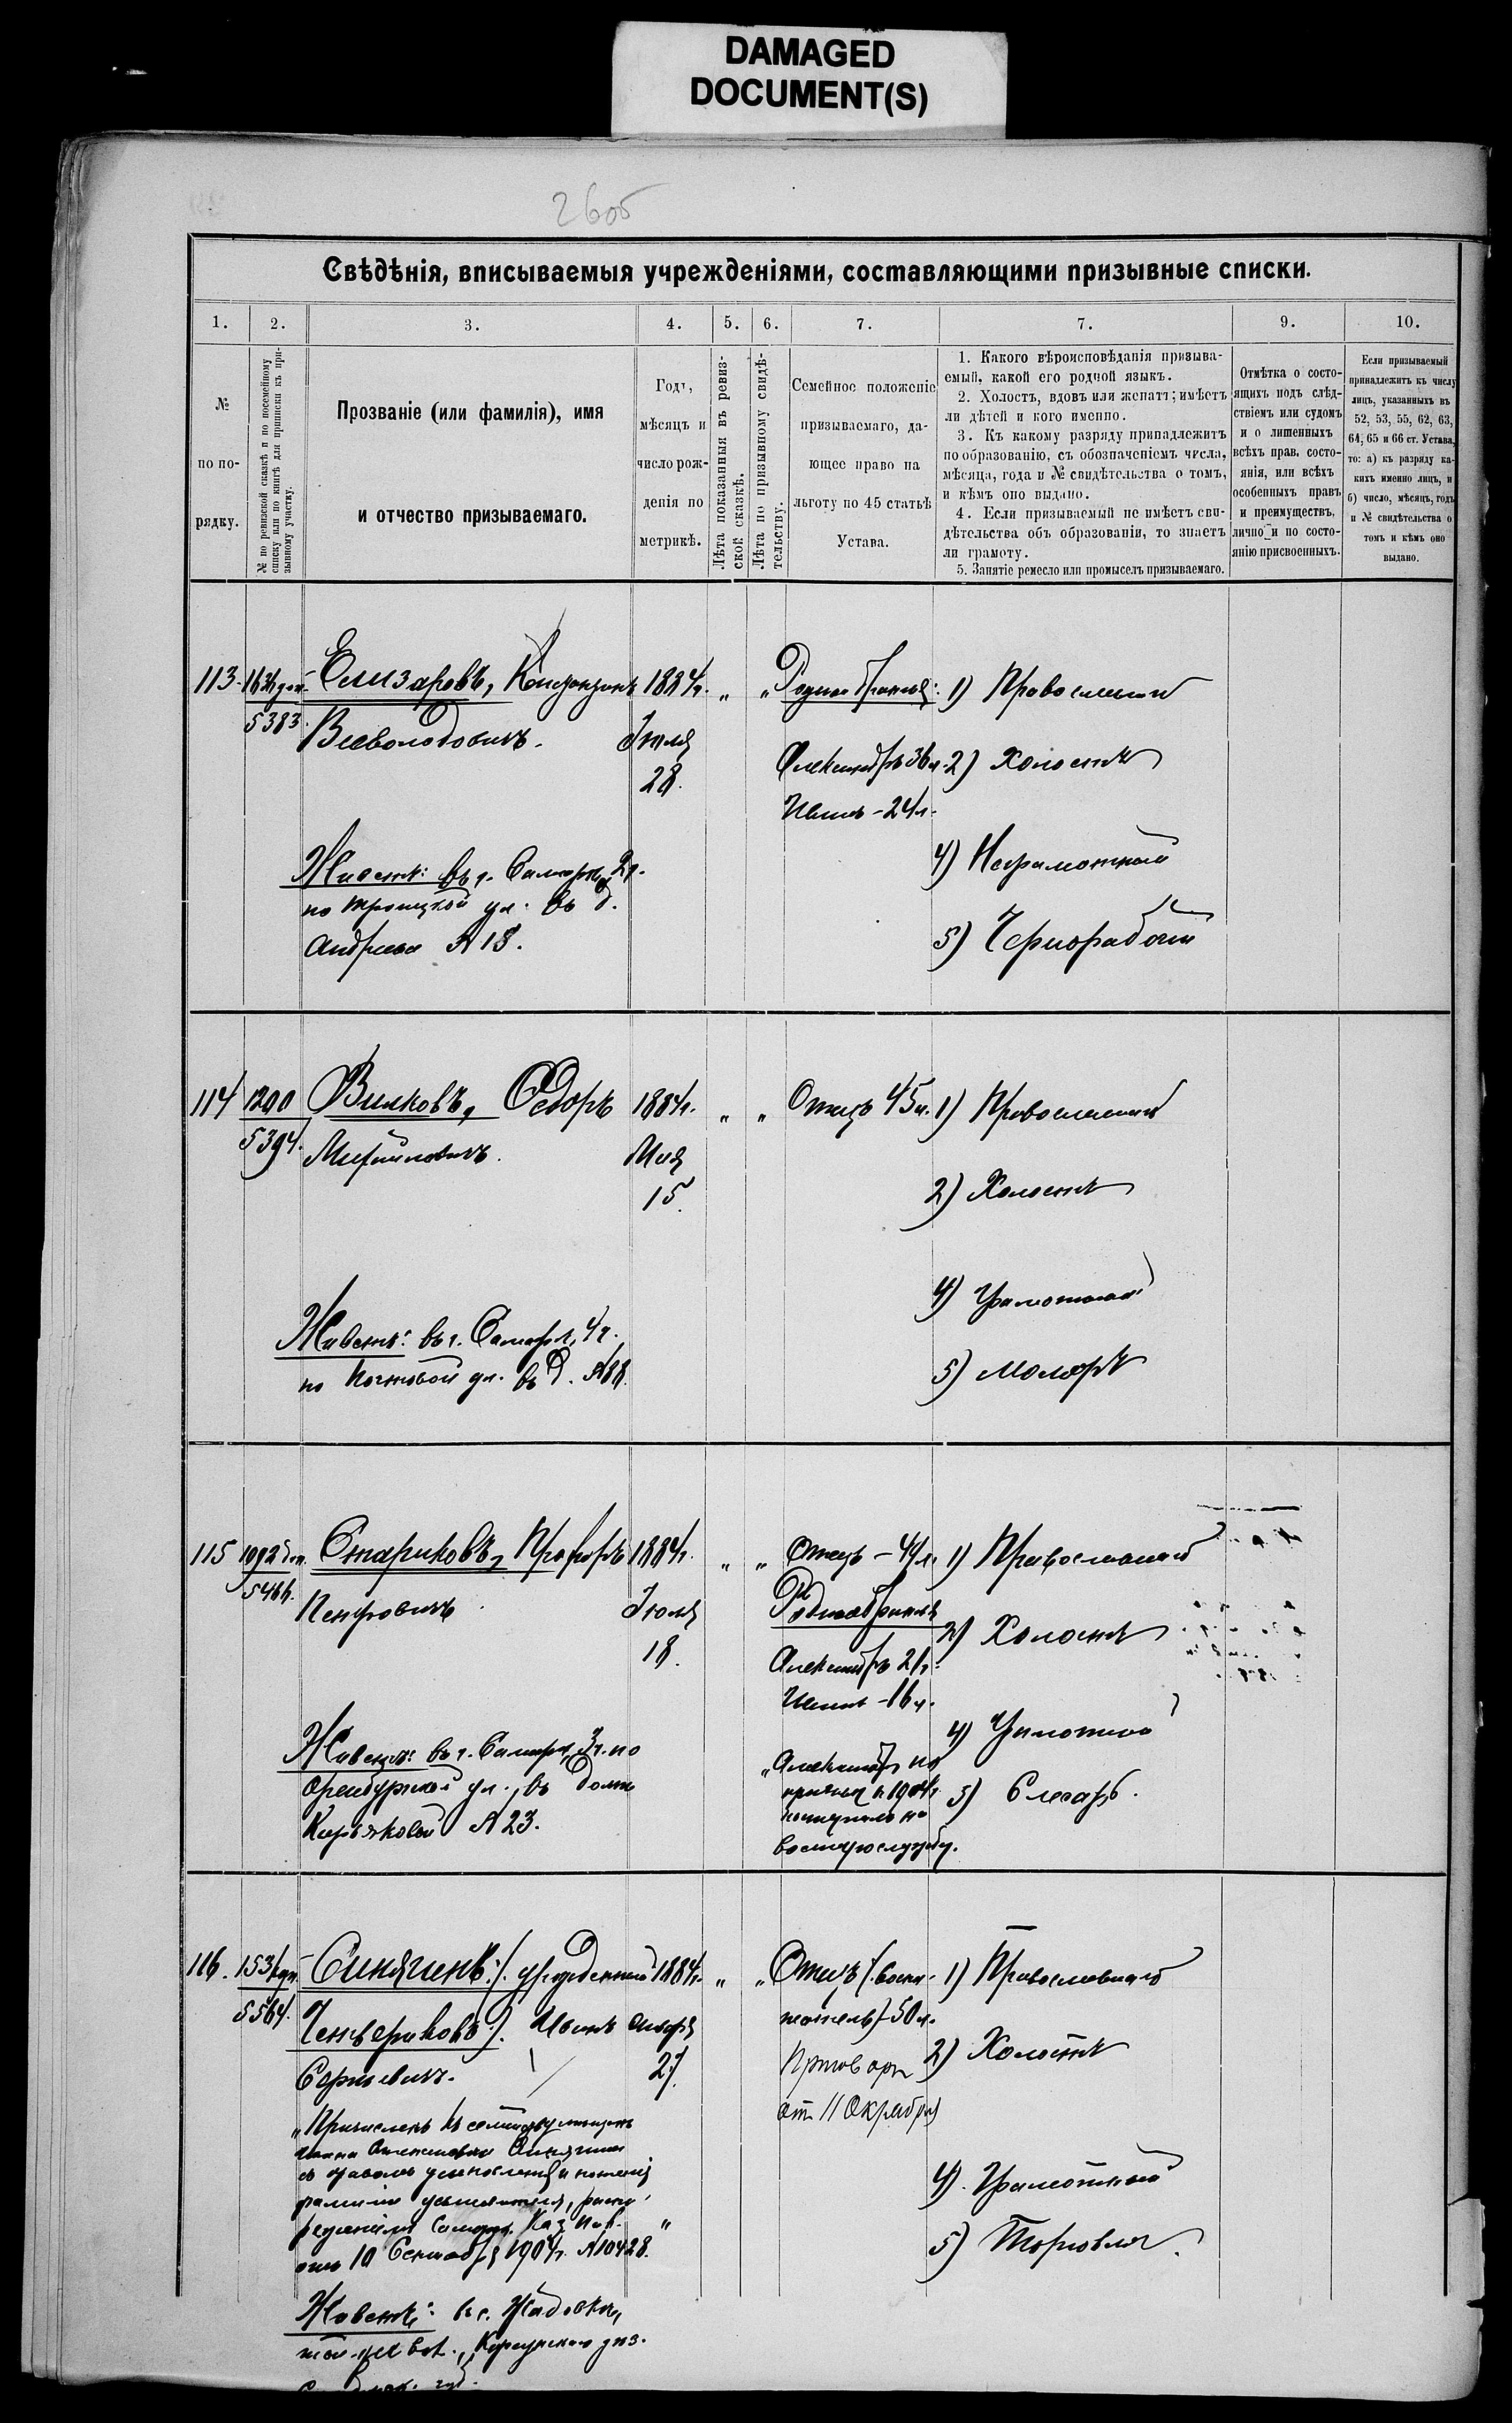 DAMAGED
DOCUMENT(S)
26об
Свѣдѣнія, вписываемыя учрежденіями, составляющими призывные списки.
1.
2.
3.
4.
5.
6.
7.
7.
9.
10.
№
по по-
рядку.
№ по ревизской сказкѣ и по посемейному
списку или по книгѣ для приписки къ при-
зывному участку.
Прозваніе (или фамилія), имя
и отчество призываемаго.
Годъ,
мѣсяцъ и
число рож-
денія по
метрикѣ.
Лѣта показанныя въ ревиз-
ской сказкѣ.
Лѣта по призывному свидѣ-
тельству.
Семейное положеніе
призываемаго, да-
ющее право на
льготу по 45 статьѣ
Устава.
1. Какого вѣроисповѣданія призыва-
емый, какой его родной языкъ.
2. Холостъ, вдовъ или женатъ; имѣетъ
ли дѣтей и кого именно.
3. Къ какому разряду принадлежитъ
по образованію, съ обозначеніемъ числа,
мѣсяца, года и № свидѣтельства о томъ,
и кѣмъ оно выдано.
4. Если призываемый не имѣетъ сви-
дѣтельства объ образованіи, то знаетъ
ли грамоту.
5. Занятіе ремесло или промыселъ призываемаго.
Отмѣтка о состо-
ящихъ подъ слѣд-
ствіемъ или судомъ
и о лишенныхъ
всѣхъ прав. состо-
янія, или всѣхъ
особенныхъ правъ
и преимуществъ,
лично и по состо-
янію присвоенныхъ.
Если призываемый
принадлежитъ къ числу
лицъ, указанныхъ въ
52, 53, 55, 62, 63,
64, 65 и 66 ст. Устава,
то: а) къ разряду ка-
кихъ именно лицъ, и
б) число, мѣсяцъ, годъ
и № свидѣтельства о
томъ и кѣмъ оно
выдано.
113.
5383.
Елизаровъ,
Всеволодовичъ.
1884г.
Іюля
28.
" "
Родные братья:
Александръ 36л.
Иванъ - 24л.
1) Православный
2) Холостъ
4) Неграмотный
5) Чернорабочій
Живетъ: въ г. Самарѣ, 2ч.
по Троицкой ул. въ д.
Андреева № 18.
114
1290
5394.
Вилковъ, Ѳедоръ
Михайловичъ.
1884г.
Мая
15.
" "
Отецъ 45л.
1) Православный
2) Холостъ
4) Грамотный
5) Маляръ
Живетъ: въ г. Самарѣ, 4ч.
по Почтовой ул. въ д. № 88.
115
1092 доп.
5466.
Стариковъ, Прохоръ
Петровичъ
1884г.
Іюля
18.
" "
Отецъ - 44л.
Родные братья
Александръ 21г.
Иванъ - 16л.
„Александръ по
призыву 1904г.
поступилъ на
военную службу.
1) Православный
2) Холостъ
4) Грамотный
5) Слесарь.
Живетъ: въ г. Самарѣ, 3ч. по
Оренбургской ул., въ домѣ
Карьяковой № 23.
116.
5564.
Синягинъ /. урожденный
Четвериковъ /. Иванъ
Сергѣевичъ.
1884г.
Января
27.
" "
Отецъ /. воспи-
татель) - 50л.
Приговоръ
от 11 Октября
1) Православный
2) Холостъ
4). Грамотный
5) Торговля.
„Причисленъ къ семейству мѣщан.
съ правомъ усыновленія и ношенія
фаміліи усыновителя, распо-
ряженіемъ Самарск. Каз. Пал.
отъ 10 Сентября 1904г. № 10428."
Живетъ: въ с. Жадовкѣ,
той-же вол., Корсунскаго уѣз.